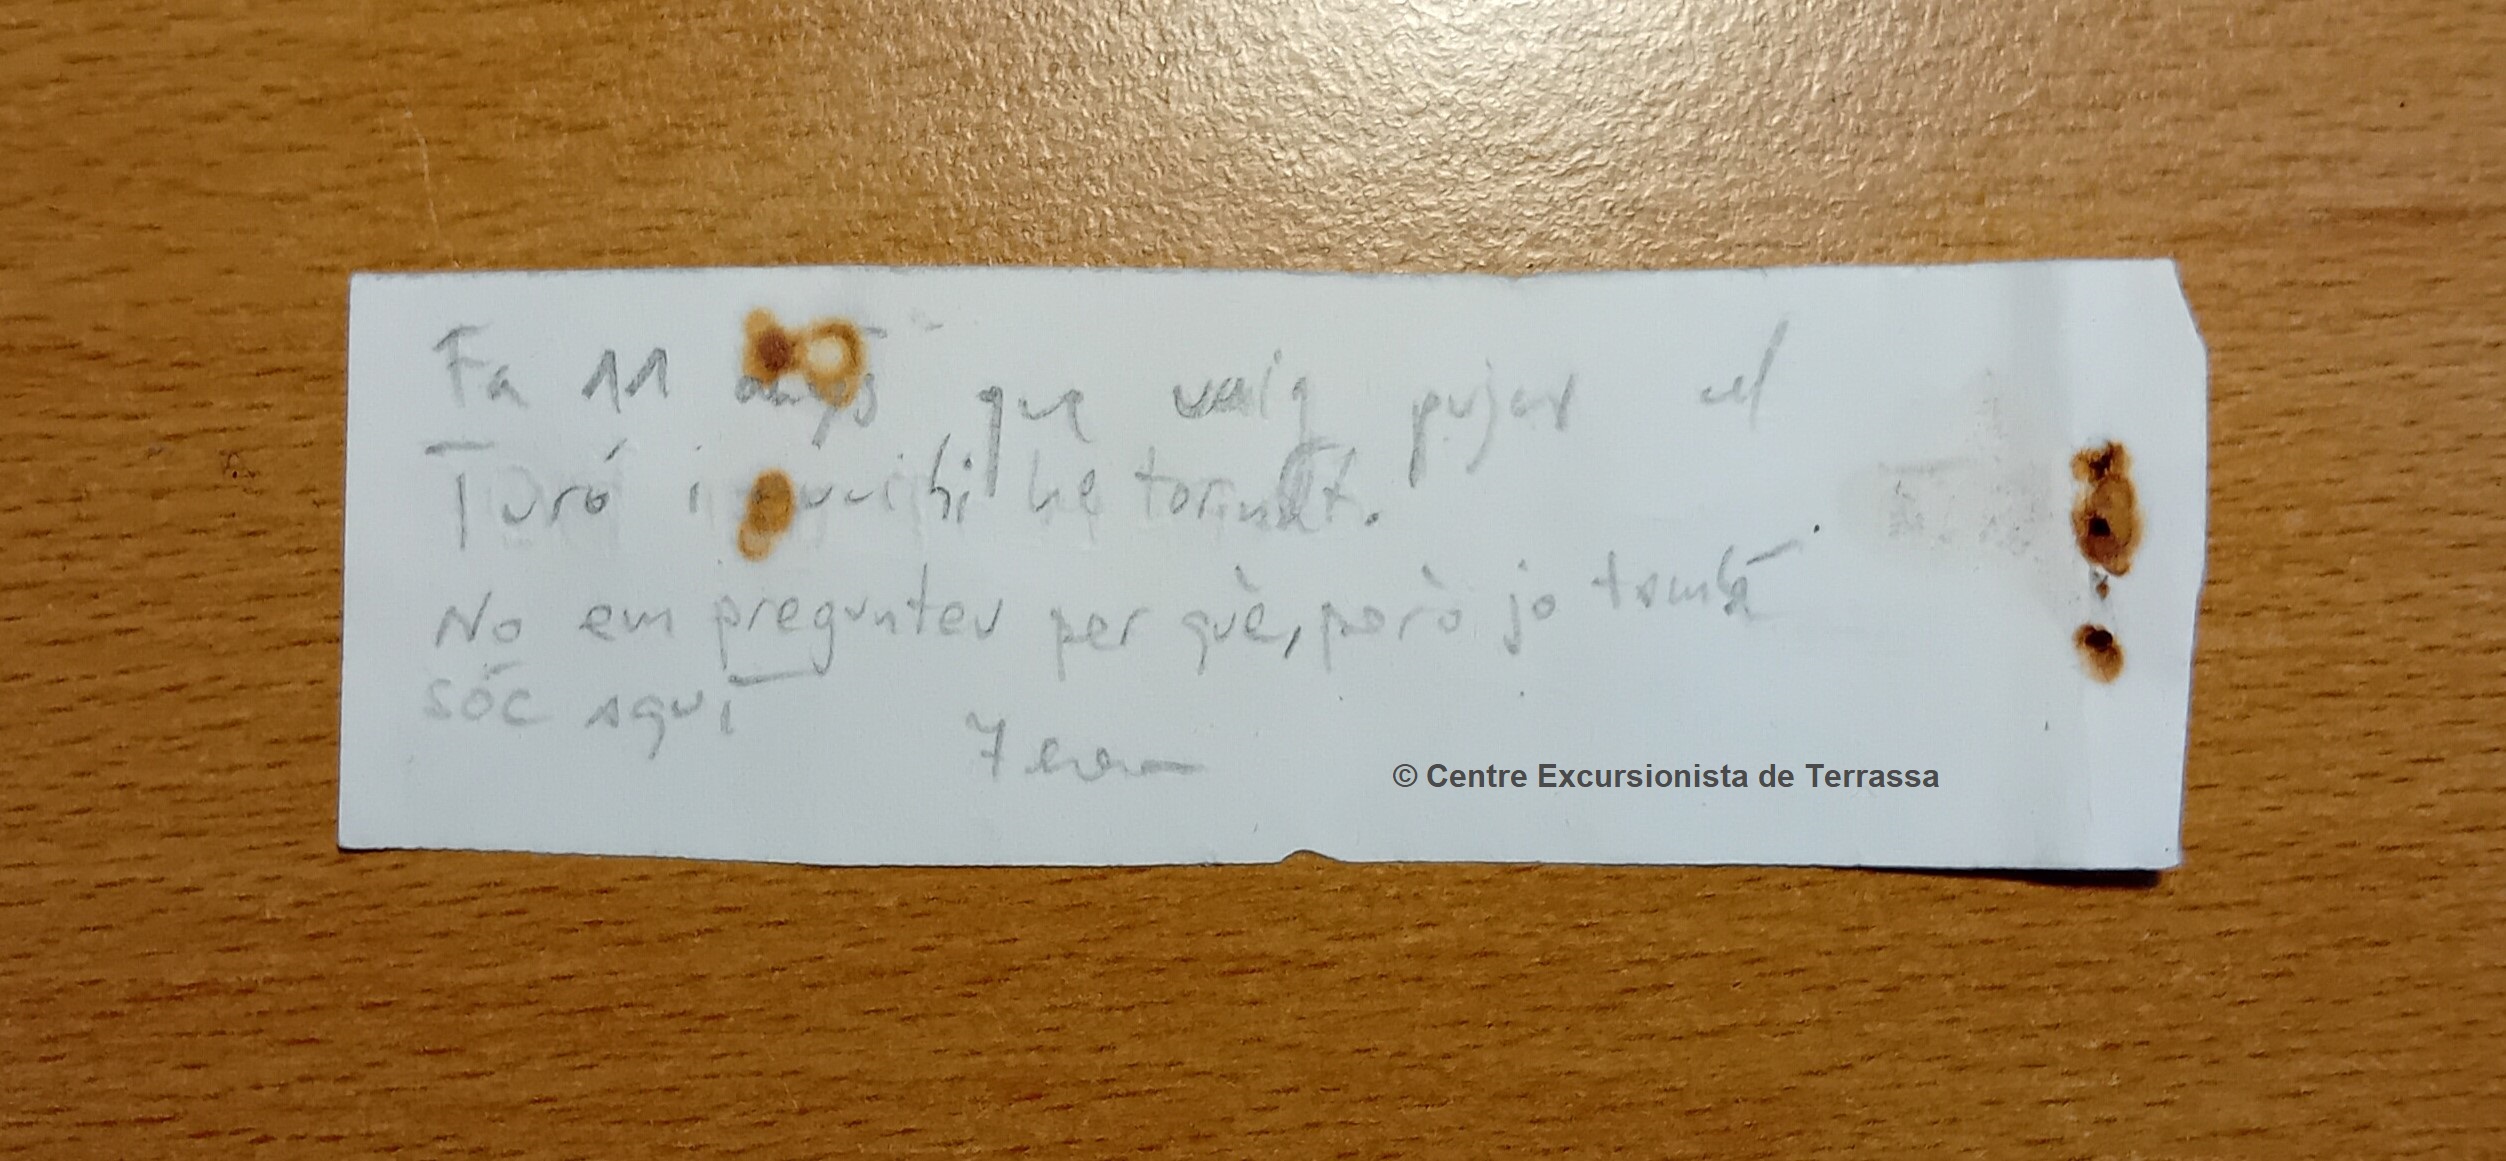 Fa 11 anys que vaig pujar el
Turó i avui hi he tornat.
No em pregunteu per què, però jo també
sóc aquí
© Centre Excursionista de Terrassa